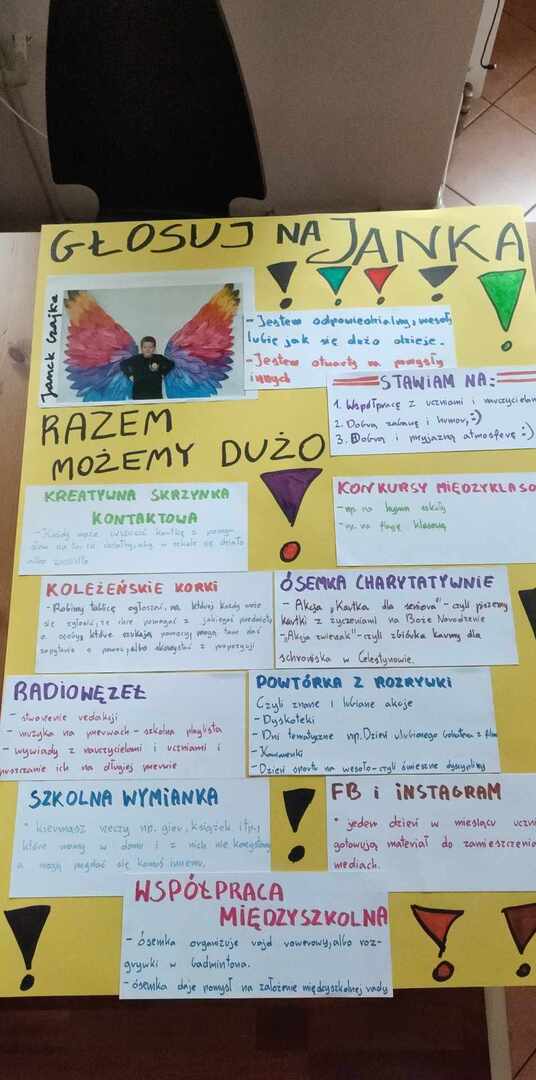 GŁOSUJ NA JANKA
Janek Czajka
- Jestem odpowiedzialny, wesoły
lubię jak się dużo dzieje.
- Jestem otwarty na pomysły
innych
STAWIAM NA:
1. Współpracę z uczniami i nauczycielam
2. Dobrą zabawę i humor, :)
3. Dobrą i przyjazną atmosferę :)
RAZEM
MOŻEMY DUŻO
KREATYWNA SKRZYNKA
KONTAKTOWA
- Każdy może wrzucić kartkę z pomy-
słem na to, co chciałby, aby w szkole się działo
albo zmieniło
KONKURSY MIĘDZYKLASO
- np. na hymn szkoły
- np. na flagę klasową
KOLEŻEŃSKIE KORKI
- Robimy tablicę ogłoszeń, na której każdy może
się zgłosić, że chce pomagać z jakiegoś przedmiotu
a osoby, które szukają pomocy mogą tam dać
zapytanie o pomoc, albo skorzystać z propozycji
ÓSEMKA CHARYTATYWNIE
- Akcja „Kartka dla seniora" - czyli piszemy
kartki z życzeniami na Boże Narodzenie
- „Akcja zwierzak" - czyli zbiórka karmy dla
schroniska w Celestynowie.
RADIOWĘZEŁ
- stworzenie redakcji
- muzyka na przerwach - szkolna playlista
- wywiady z nauczycielami i uczniami i
puszczanie ich na długiej przerwie
POWTÓRKA Z ROZRYWKI
Czyli znane i lubiane akcje
- Dyskoteki
- Dni tematyczne np. Dzień ulubionego bohatera z film
- Dzień sportu na wesoło - czyli śmieszne dyscypliny
SZKOLNA WYMIANKA
• kiermasz rzeczy np. gier, książek itp.,
które mamy w domu i z nich nie korzystamy
a mogą przydać się komuś innemu.
FB i INSTAGRAM
• jeden dzień w miesiącu uczni
gotowują materiał do zamieszczenia
mediach.
WSPÓŁPRACA
MIĘDZYSZKOLNA
- ósemka organizuje rajd rowerowy, albo roz-
grywki w badmintona.
- ósemka daje pomysł na założenie międzyszkolnej rady